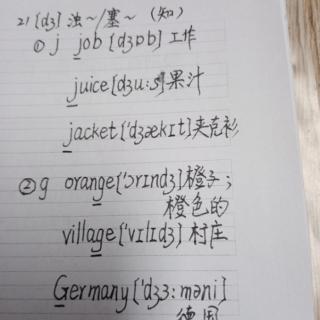 21 [dʒ] 浊～/塞～ （知）
① j job [dʒɒb] 工作
juice [dʒu:s] 果汁
jacket ['dʒækɪt] 夹克衫
② g orange ['ɔrɪndʒ] 橙子；
橙色的
village ['vɪlɪdʒ] 村庄
Germany ['dʒɜ:məni]
德国